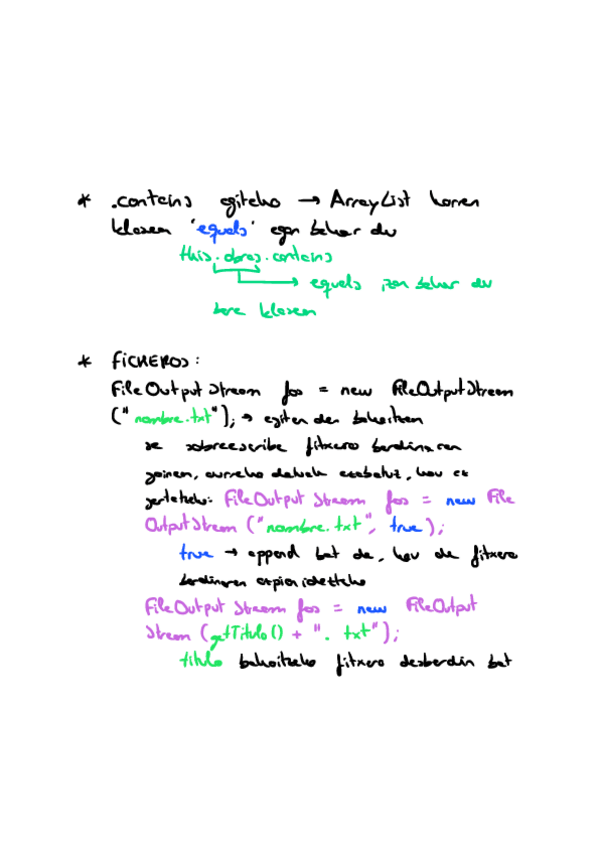 * .contains egiteko → ArrayList horren
klasean 'equals' egon behar du
this.obras.contains
→ equals izan behar du
bere klasean
* FICHEROS:
FileOutputStream fos = new FileOutputStream
("nombre.txt"); → egiten den bakoitzean
se sobreescribe fitxero berdinaren
gainean, aurreko datuak ezabatuz, hau ez
gertatzeko: FileOutputStream fos = new File
OutputStream ("nombre.txt", true);
true → append bat da, hau da fitxero
berdinaren azpian idazteko
FileOutputStream fos = new FileOutput
Stream (getTitulo() + ". txt");
titulo bakoitzeko fitxero desberdin bat